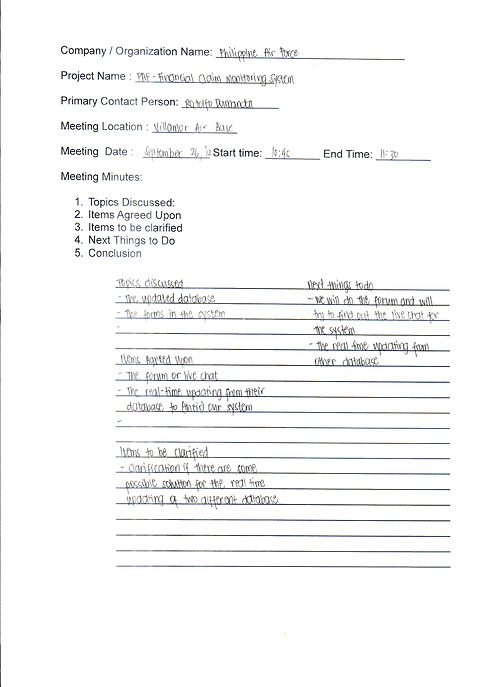 Company / Organization Name: Philippine Air Force
Project Name : PAF - Financial Claim Monitoring System
Primary Contact Person: Rodolfo
Meeting Location : Villamor Air Base
Meeting Date : September 26, Start time: 10:45 End Time: 11:30
Meeting Minutes:
1. Topics Discussed:
2. Items Agreed Upon
3. Items to be clarified
4. Next Things to Do
5. Conclusion
Topics discussed
- The updated database
- The forms in the system
-
Items agreed upon
- The forum or live chat
- The real-time updating from their
database to our system
-
Items to be clarified
- clarification if there are some
possible solution for the real time
updating of two different database
Next things to do
- We will do the forum and will
try to find out the live chat for
the system
- The real time updating from
other database